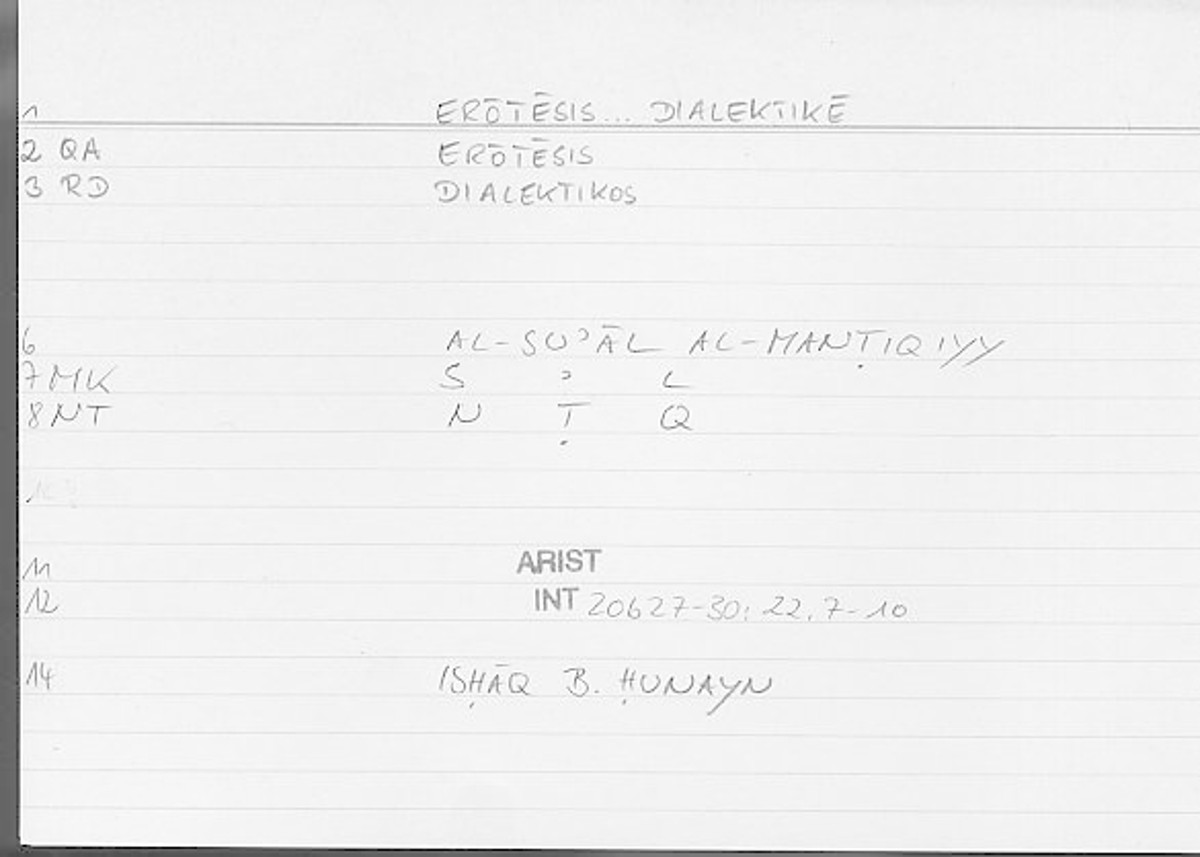 1 ERŌTĒSIS... DIALEKTIKĒ
2 QA ERŌTĒSIS
3 RD DIALEKTIKOS
6 AL-SUʾĀL AL-MANṬIQIYY
7 MK S ʾ L
8 NT N Ṭ Q
11 ARIST
12 INT 20b27-30; 22.7-10
14 ISḤĀQ B. ḤUNAYN